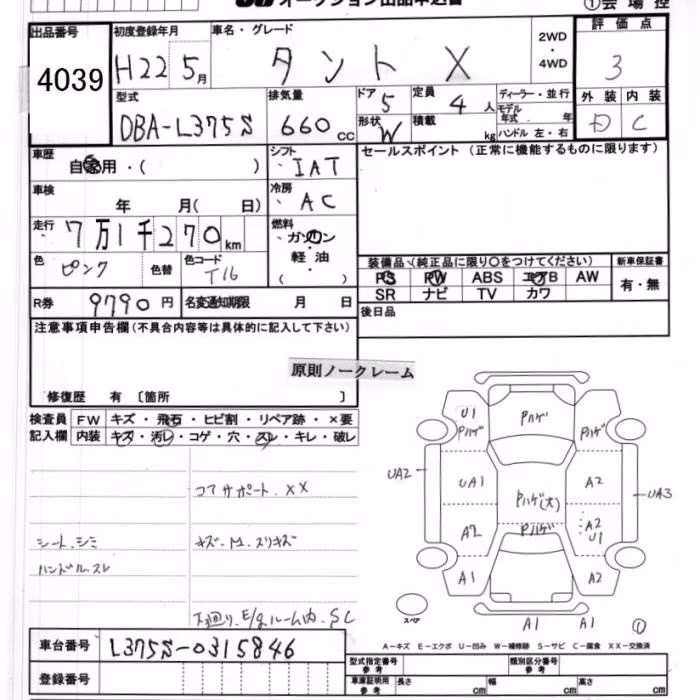 オークション出品申込書
①会場控
出品番号 4039
初度登録年月 H22 5月
車名・グレード タント X
2WD・4WD
評価点 3
型式 DBA-L375S
排気量 660 cc
ドア 5 定員 4人
形状 W 積載 kg
ディーラー・並行
モデル年式 年
ハンドル 左・右
外装 内装
D C
車歴 自家用・( )
シフト IAT
セールスポイント (正常に機能するものに限ります)
車検 年 月( 日)
冷房 AC
走行 7万1千270km
燃料 ガソリン・軽油・( )
色 ピンク 色替 色コード T16
装備品 (純正品に限り〇をつけてください) 新車保証書
PS PW ABS エアB AW 有・無
SR ナビ TV カワ
R券 9790円 名変通知期限 月 日
後日品
注意事項申告欄 (不具合内容等は具体的に記入して下さい)
原則ノークレーム
修復歴 有 〔箇所
検査員 FW キズ・飛石・ヒビ割・リペア跡・×要
記入欄 内装 キズ・汚レ・コゲ・穴・スレ・キレ・破レ
コアサポート. XX
シート.シミ
ハンドル.スレ
下廻り.E/gルーム内.SC
U1 Pハゲ Pハゲ Pハゲ
UA2 UA1 Pハゲ(大) A2 UA3
A2 Pハゲ A2 U1
A1 A2
スペア A1 A1 ①
A-キズ E-エクボ U-凹み W-補修跡 S-サビ C-腐食 XX-交換済
車台番号 L375S-0315846
登録番号
型式指定番号 参考 類別区分番号 参考
車庫証明用 参考 長さ cm 幅 cm 高さ cm